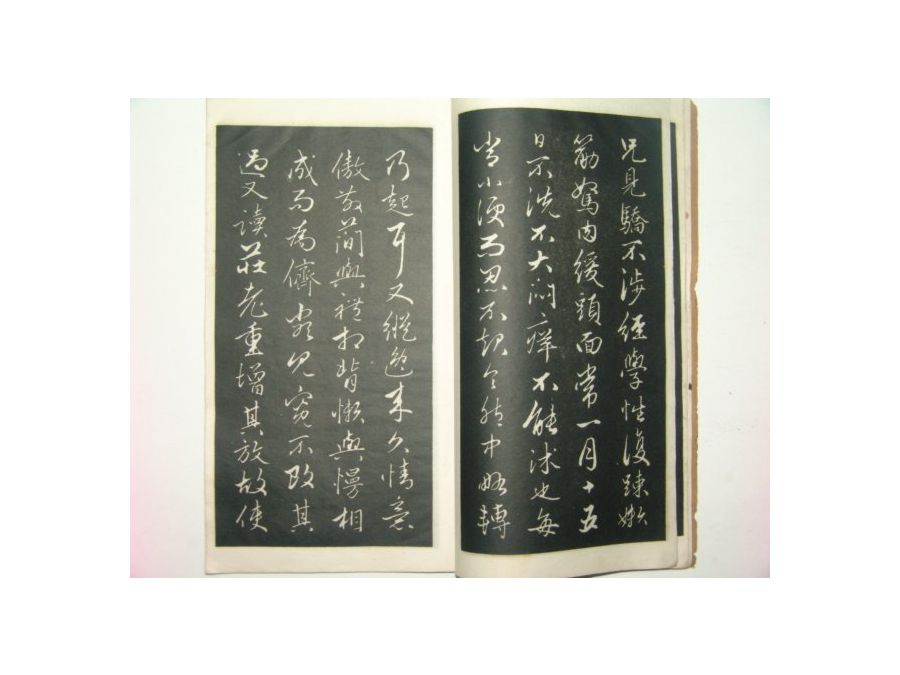 兄見驕不涉經學性復踈嬾
筋駑肉緩頭面常一月十五
日不洗不大悶痒不能沐也每
常小便而忍不起令胞中略轉
乃起耳又縱逸来久情意
傲散簡與禮相背懶與慢相
成而為儕類見寬不攻其
過又讀莊老重增其放故使